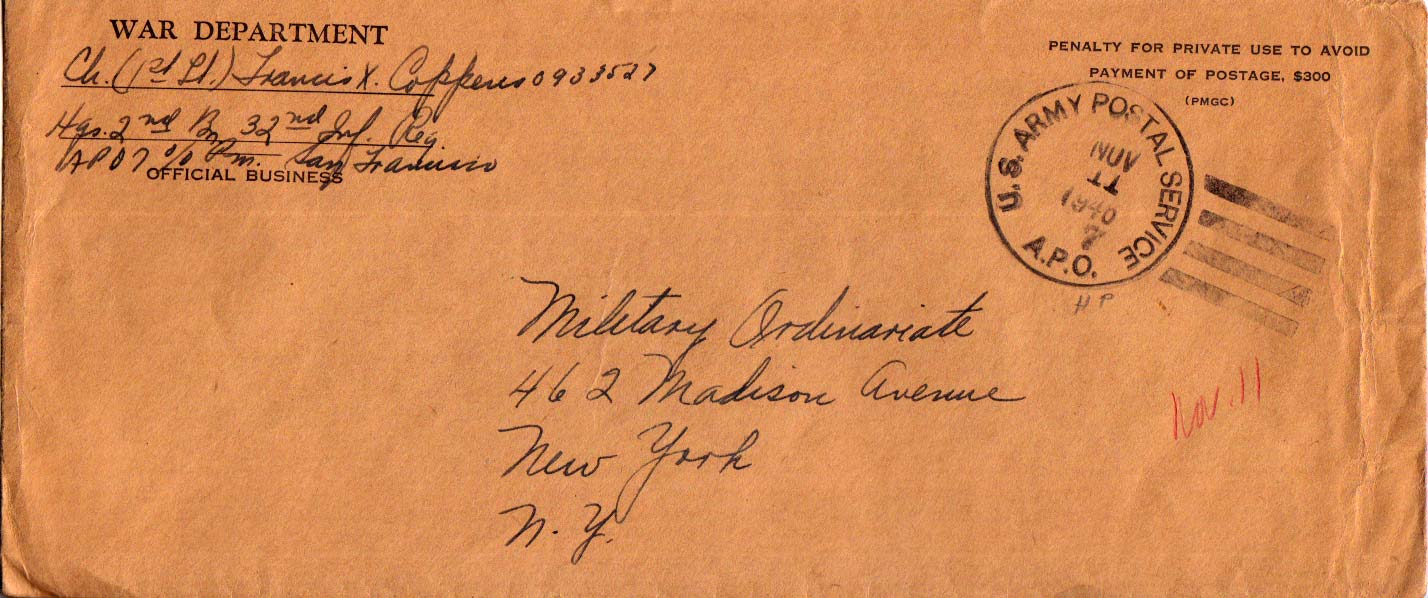 WAR DEPARTMENT
Ch. (1st Lt.) Francis X. Coppens 0933527
Hqs. 2nd Bn 32nd Inf. Reg.
APO 7 c/o Pm. San Francisco
OFFICIAL BUSINESS
PENALTY FOR PRIVATE USE TO AVOID
PAYMENT OF POSTAGE, $300
(PMGC)
U.S. ARMY POSTAL SERVICE
NOV
11
1946
7
A.P.O.
HP
Military Ordinariate
462 Madison Avenue
New York
N.Y.
Nov. 11